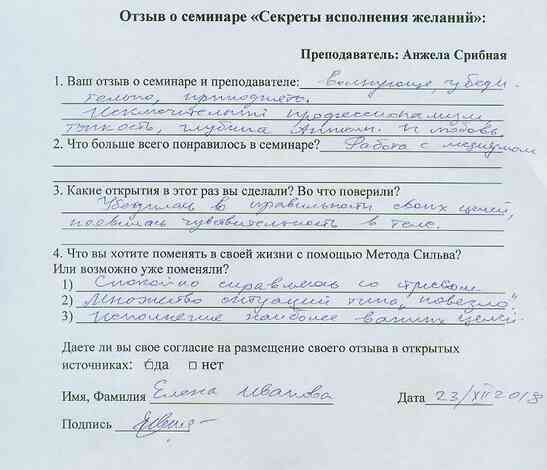 Отзыв о семинаре «Секреты исполнения желаний»:
Преподаватель: Анжела Срибная
1. Ваш отзыв о семинаре и преподавателе: Волнующе, убеди
тельно, приподнято.
Исключительный профессионализм
тонкость, глубина Анжелы. И любовь.
2. Что больше всего понравилось в семинаре? Работа с медиумом
3. Какие открытия в этот раз вы сделали? Во что поверили?
Убедилась в правильности своих целей,
появилась чувствительность в теле.
4. Что вы хотите поменять в своей жизни с помощью Метода Сильва?
Или возможно уже поменяли?
1) Спокойно справляюсь со стрессом
2) Множество ситуаций типа „повезло"
3) Исполнение наиболее важных целей.
Даете ли вы свое согласие на размещение своего отзыва в открытых
источниках: да нет
Имя, Фамилия Елена Иванова Дата 23/XII 2018
Подпись